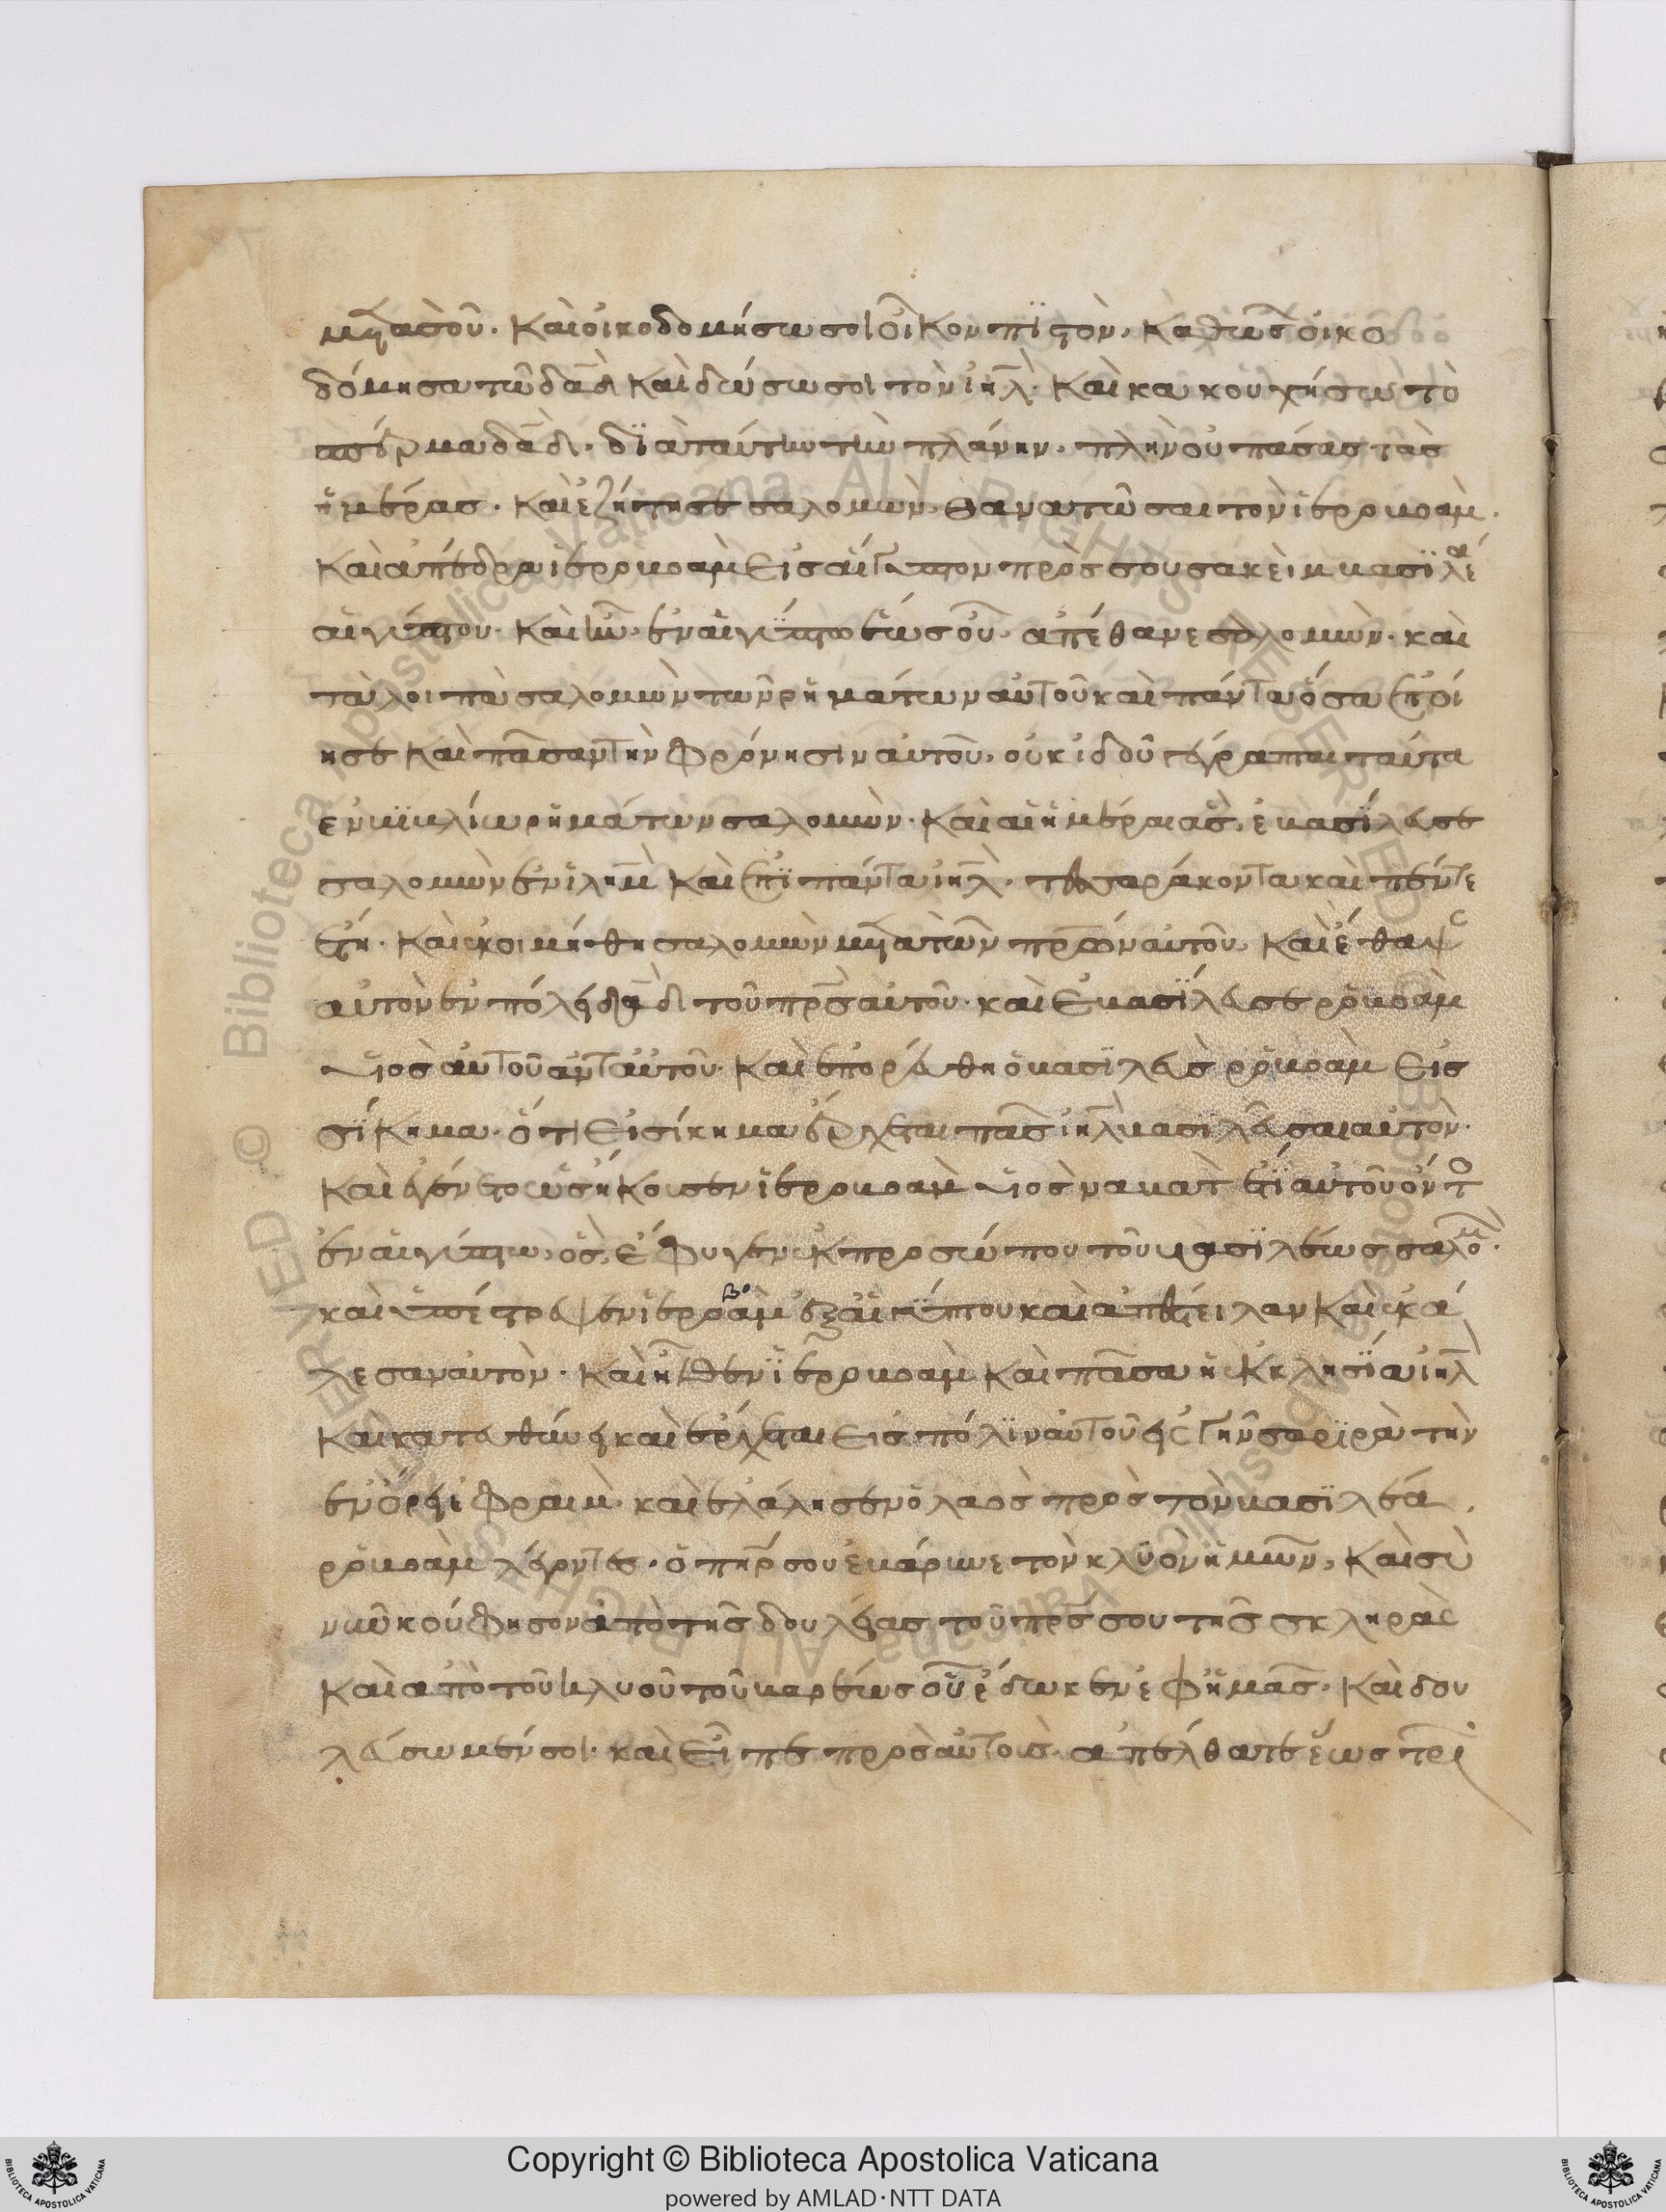 μετὰ σοῦ. καὶ οἰκοδομήσω σοι οἶκον πιστὸν, καθὼς οἰκο
δόμησα τῶ δᾱδ καὶ δώσω σοι τὸν ιη̄λ. καὶ κακουχήσω τὸ
σπέρμα δᾱδ. διὰ ταύτην τὴν πλάνην. πλὴν οὐ πάσας τὰς
ἡμέρας. καὶ ἐζήτησε σαλομὼν θανατῶσαι τὸν ἱεροβοὰμ.
καὶ ἀπέδρα ἱεροβοὰμ εἰς αἴγυπτον πρὸς σουσακεὶμ βασιλέα
αἰγύπτου. καὶ ἦν ἐν αἰγύπτω ἕως οὗ ἀπέθανε σολομὼν. καὶ
τὰ λοιπὰ σαλομὼν τῶν ῥημάτων αὐτοῦ καὶ πάντα ὅσα ἐποί
ησε καὶ πᾶσαν τὴν φρόνησιν αὐτοῦ, οὐκ ἰδοῦ γέγραπται ταῦτα
εν βιβλίω ῥημάτων σαλομὼν. καὶ αἱ ἡμέραι ἃς ἐβασίλευσε
σαλομὼν ἐν ἱλη̄μ καὶ ἐπὶ πάντα ιη̄λ. τεσσαράκοντα καὶ πέντε
ἔτη. καὶ ἐκοιμήθη σαλομὼν μετὰ τῶν πρ̄ων αὐτοῦ, καὶ ἔθαψ
αὐτὸν ἐν πόλει δᾱδ τοῦ πρ̄ς αὐτοῦ. καὶ ἐβασίλευσε ῥοβοὰμ
υἱὸς αὐτοῦ ἀντ αὐτοῦ. καὶ ἐπορεύθη ὁ βασιλεὺς ῥοβοὰμ εἰς
σίκημα. ὅτι εἰς σίκημα ἔρχεται πᾶς ιη̄λ βασιλεῦσαι αὐτὸν.
καὶ ἐγένετο ὡς ἤκουσεν ἱεροβοὰμ υἱὸς ναβὰτ ἔτι αὐτοῦ ὄντο
ἐν αἰγύπτω, ὃς ἔφυγεν ἐκ προσώπου τοῦ βασιλέως σαλομ.
καὶ ὑπέστρεψεν ἱεροβοὰμ ἐξ αἰγύπτου καὶ ἀπέστειλαν καὶ ἐκά
λεσαν αὐτὸν. καὶ ἦλθεν ἱεροβοὰμ καὶ πᾶσα ἡ ἐκκλησία ιη̄λ
καὶ κατευθύνει καὶ ἔρχεται εἰς πόλιν αὐτοῦ εἰς τὴν σαριρὰ τὴν
ἐν ὄρει ἐφραιμ. καὶ ἐλάλησεν ὁ λαὸς πρὸς τὸν βασιλέα
ῥοβοὰμ λέγοντες. ὁ πη̄ρ σου ἐβάρυνε τὸν κλυὸν ἡμῶν, καὶ σὺ
νῦν κούφησον ἀπὸ τῆς δουλείας τοῦ πρ̄ς σου τῆς σκληρᾶς
καὶ ἀπὸ τοῦ κλυοῦ τοῦ βαρέως οὗ ἔδωκεν ἐφ ἡμᾶς. καὶ δου
λεύσωμέν σοι. καὶ εἶπε πρὸς αὐτοὺς. ἀπέλθατε ἕως τρι
Copyright © Biblioteca Apostolica Vaticana
powered by AMLAD·NTT DATA